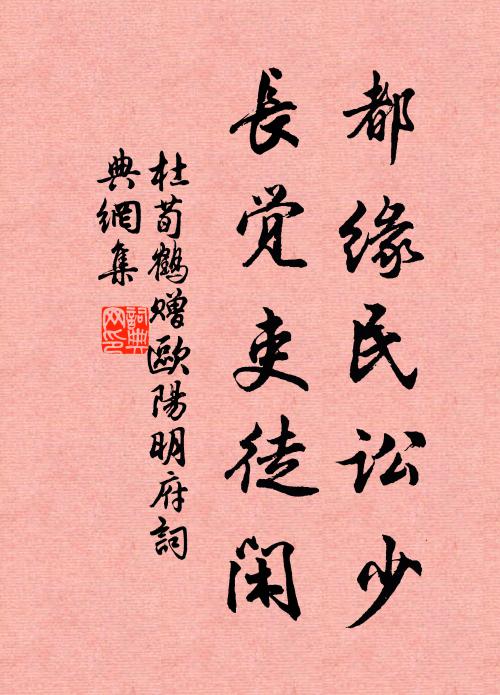 都缘民讼少
長觉吏徒闲
杜荀鶴赠歐陽明府詞
典網集
詞典网印